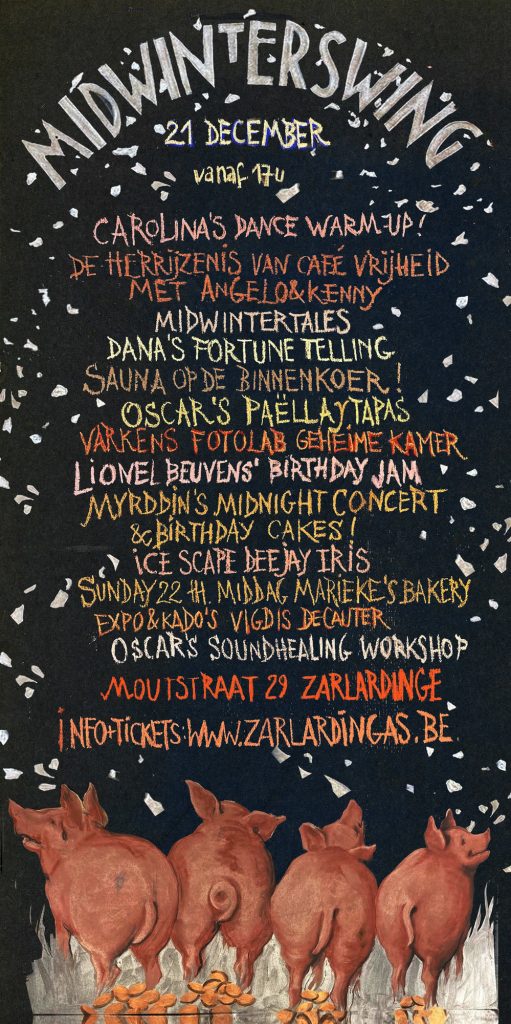 MIDWINTERSWING
21 DECEMBER
vanaf 17u
CAROLINA'S DANCE WARM-UP!
DE HERRIJZENIS VAN CAFÉ VRIJHEID
MET ANGELO & KENNY
MIDWINTERTALES
DANA'S FORTUNE TELLING
SAUNA OP DE BINNENKOER!
OSCAR'S PAËLLAYTAPAS
VARKENS FOTOLAB GEHEIME KAMER
LIONEL BEUVENS' BIRTHDAY JAM
MYRDDIN'S MIDNIGHT CONCERT
& BIRTHDAY CAKES!
ICE SCAPE DEEJAY IRIS
SUNDAY 22 TH. MIDDAG MARIEKE'S BAKERY
EXPO & KADO'S VIGDIS DECAUTER
OSCAR'S SOUNDHEALING WORKSHOP
MOUTSTRAAT 29 ZARLARDINGE
INFO+TICKETS:WWW.ZARLARDINGAS.BE